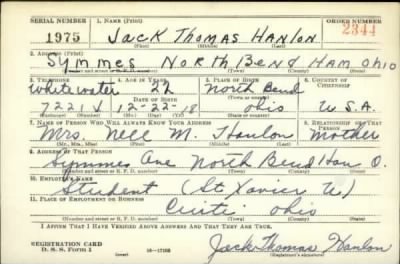 SERIAL NUMBER 1. NAME (Print) ORDER NUMBER
1975 Jack Thomas Hanlon 2344
(First) (Middle) (Last)
2. ADDRESS (Print)
Symmes North Bend Ham Ohio
(Number and street or R. F. D. number) (Town) (County) (State)
3. TELEPHONE 4. AGE IN YEARS 5. PLACE OF BIRTH 6. COUNTRY OF CITIZENSHIP
Whitewater 22 North Bend
DATE OF BIRTH (Town or county)
7221 J 12-22-18 Ohio U S A.
(Exchange) (Number) (Mo.) (Day) (Yr.) (State or country)
7. NAME OF PERSON WHO WILL ALWAYS KNOW YOUR ADDRESS 8. RELATIONSHIP OF THAT PERSON
Mrs. Nell M. Hanlon Mother
(Mr., Mrs., Miss) (First) (Middle) (Last)
9. ADDRESS OF THAT PERSON
Symmes Ave North Bend Ham O.
(Number and street or R. F. D. number) (Town) (County) (State)
10. EMPLOYER'S NAME
Student (St Xavier U)
11. PLACE OF EMPLOYMENT OR BUSINESS
Cinti Ohio
(Number and street or R. F. D. number) (Town) (County) (State)
I AFFIRM THAT I HAVE VERIFIED ABOVE ANSWERS AND THAT THEY ARE TRUE.
REGISTRATION CARD
D. S. S. Form 1 (over) Jack Thomas Hanlon
(Registrant's signature)